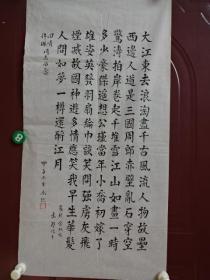 大江東去浪淘盡千古風流人物故壘
西邊人道是三國周郎赤壁亂石穿空
驚濤拍岸卷起千堆雪江山如畫一時
多少豪傑遙想公瑾當年小喬初嫁了
雄姿英發羽扇綸巾談笑間强虜灰飛
煙滅故國神遊多情應笑我早生華髮
人間如夢一樽還酹江月